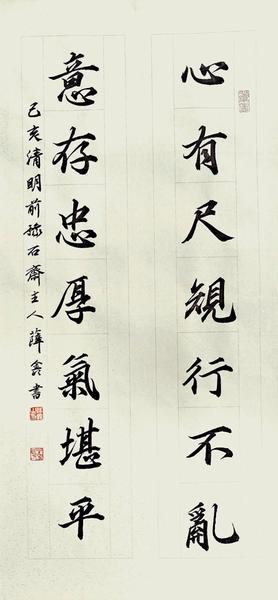 心有尺規行不亂
意存忠厚氣堪平
己亥清明前 石齋主人薛鑫書